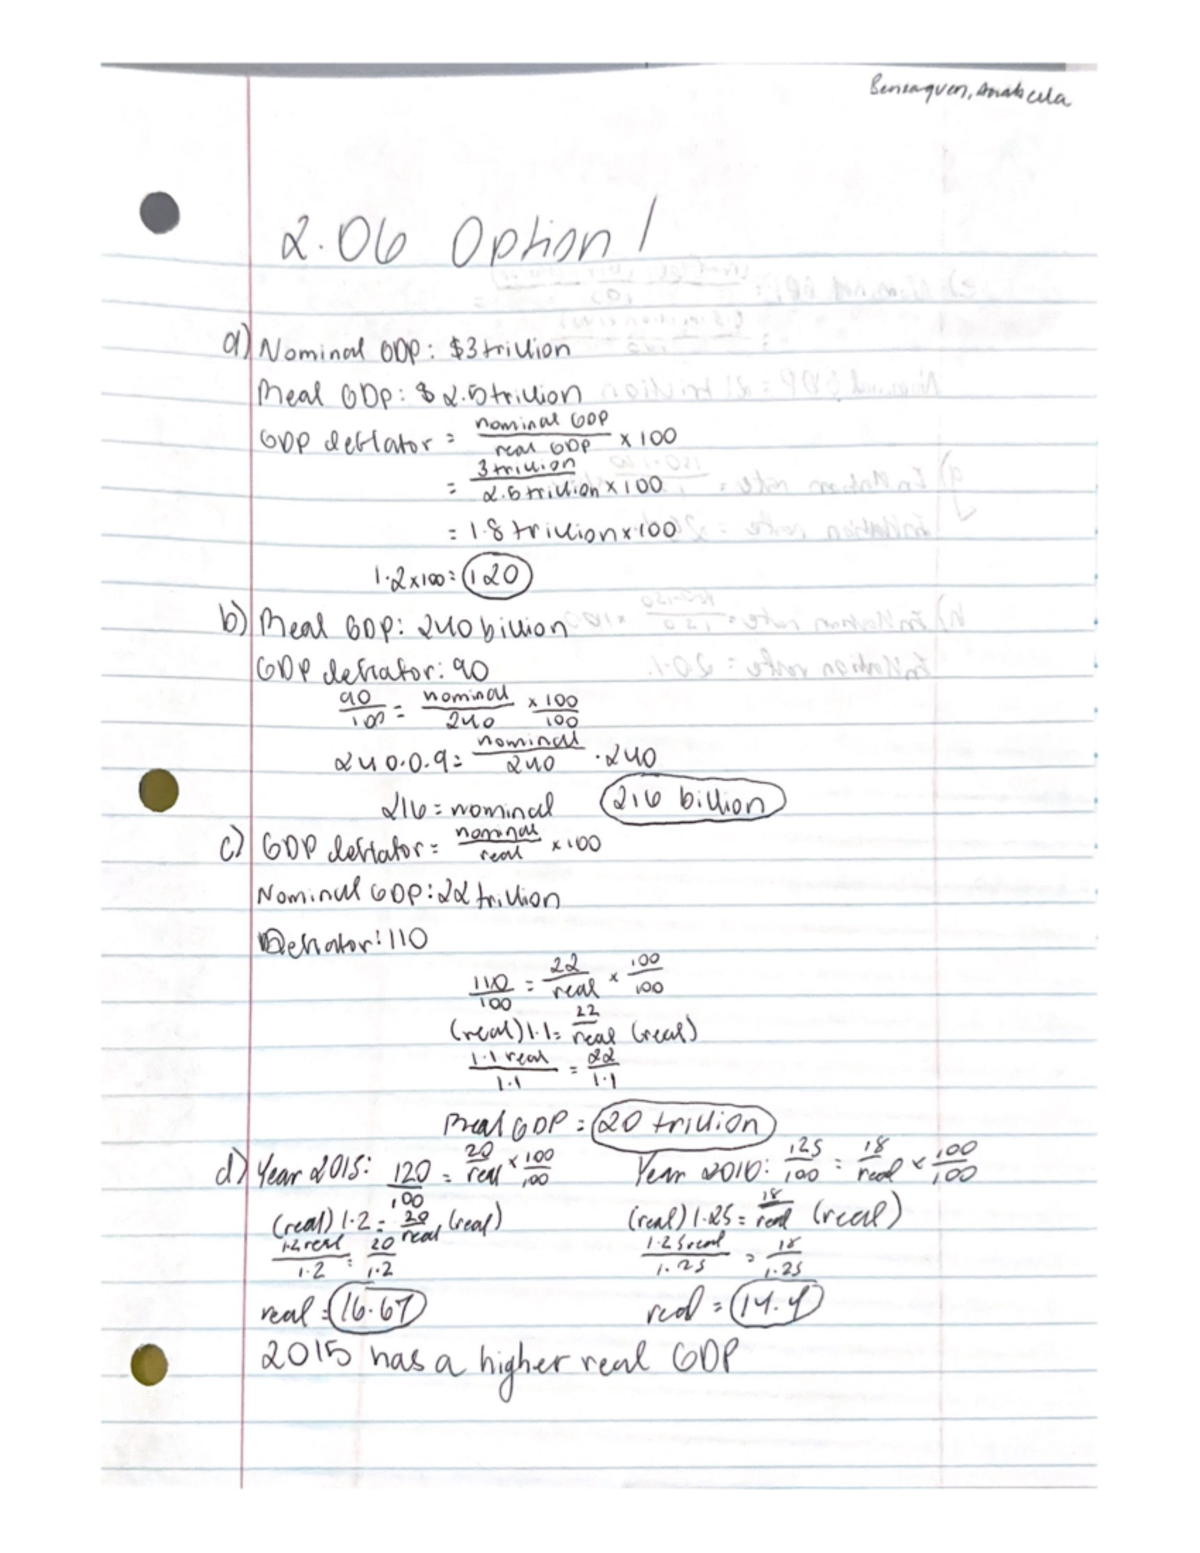 Bensaquen, Anabela
2.06 Option 1
a) Nominal GDP: $3 trillion
Real GDP: $2.5 trillion
GDP deflator = nominal GDP / real GDP × 100
= 3 trillion / 2.5 trillion × 100
= 1.8 trillion × 100
1.2 × 100 = 120
b) Real GDP: 240 billion
GDP deflator: 90
90/100 = nominal/240 × 100/100
240·0.9 = nominal/240 · 240
216 = nominal 216 billion
c) GDP deflator = nominal/real × 100
Nominal GDP: 22 trillion
Deflator: 110
110/100 = 22/real × 100/100
(real) 1.1 = 22/real (real)
1.1 real/1.1 = 22/1.1
Real GDP = 20 trillion
d) Year 2015: 120/100 = 20/real × 100/100 Year 2010: 125/100 = 18/real × 100/100
(real) 1.2 = 20/real (real) (real) 1.25 = 18/real (real)
1.2 real/1.2 = 20/1.2 1.25 real/1.25 = 18/1.25
real = 16.67 real = 14.4
2015 has a higher real GDP